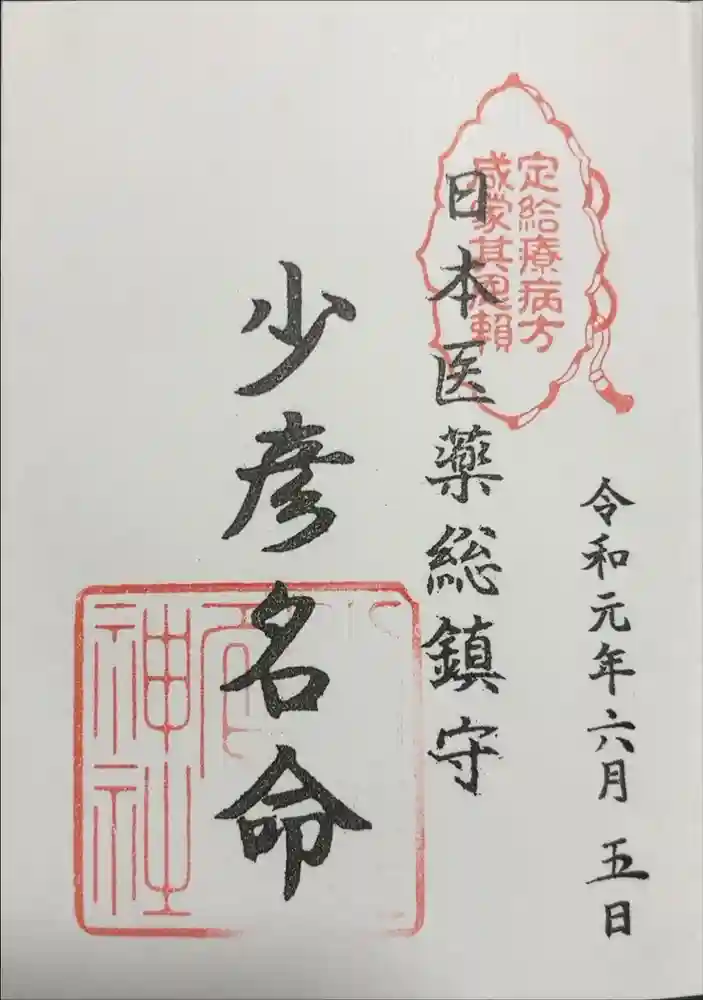 令和元年六月五日
定給療病方
咸蒙其恩頼
日本医薬総鎮守
少彦名命
神社